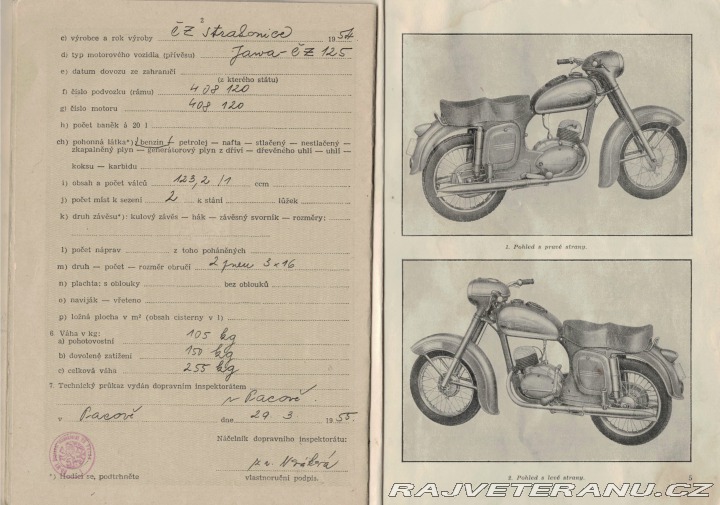 2
c) výrobce a rok výroby ČZ Strakonice 1954
d) typ motorového vozidla (přívěsu) Jawa-ČZ 125
e) datum dovozu ze zahraničí
(z kterého státu)
f) číslo podvozku (rámu) 408 120
g) číslo motoru 408 120
h) počet baněk á 20 l
ch) pohonná látka*) benzin — petrolej — nafta — stlačený — nestlačený —
zkapalněný plyn — generátorový plyn z dříví — dřevěného uhlí — uhlí —
koksu — karbidu
i) obsah a počet válců 123,2/1 ccm
j) počet míst k sezení 2 k stání lůžek
k) druh závěsu*): kulový závěs — hák — závěsný svorník — rozměry:
l) počet náprav z toho poháněných
m) druh — počet — rozměr obručí 2 pneu 3x16
n) plachta: s oblouky bez oblouků
o) naviják — vřeteno
p) ložná plocha v m² (obsah cisterny v l)
6 Váha v kg:
a) pohotovostní 105 kg
b) dovolené zatížení 150 kg
c) celková váha 255 kg
7. Technický průkaz vydán dopravním inspektorátem
v Pacově.
v Pacově dne 29 3 1955.
Náčelník dopravního inspektorátu:
*) Hodící se, podtrhněte
vlastnoruční podpis.
1. Pohled s pravé strany.
2. Pohled s levé strany.
5
RAJVETERANU.CZ